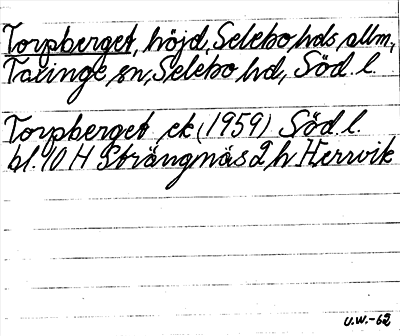 Torpberget, höjd, Selebo hds allm,
Taxinge sn, Selebo hd, Söd. l.
Torpberget ek (1959) Söd. l.
bl. 10 H Strängnäs 2 h Herrvik
U.W.-62